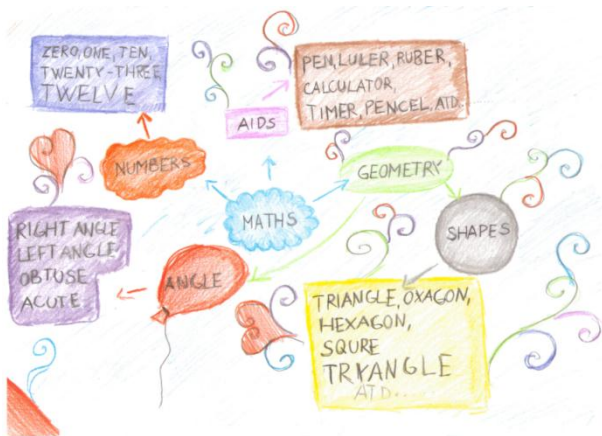 ZERO, ONE, TEN,
TWENTY-THREE
TWELVE
PEN, LULER, RUBER,
CALCULATOR,
TIMER, PENCEL. ATD
AIDS
NUMBERS
GEOMETRY
MATHS
SHAPES
RIGHT ANGLE
LEFT ANGLE
OBTUSE
ACUTE
ANGLE
TRIANGLE, OXAGON,
HEXAGON,
SQURE
TRYANGLE
ATD..